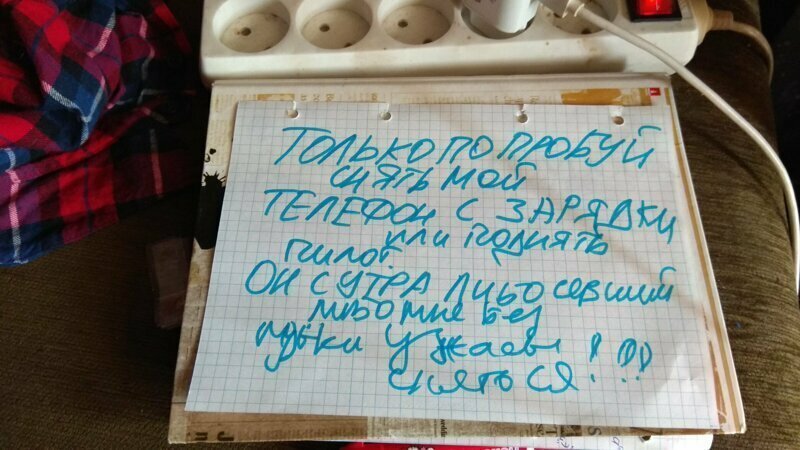 ТОЛЬКО ПОПРОБУЙ
СНЯТЬ МОЙ
ТЕЛЕФОН С ЗАРЯДКИ
или поднять
пилот
ОН С УТРА ЛИБО севший
либо мне без
ужасы
снятся!!!